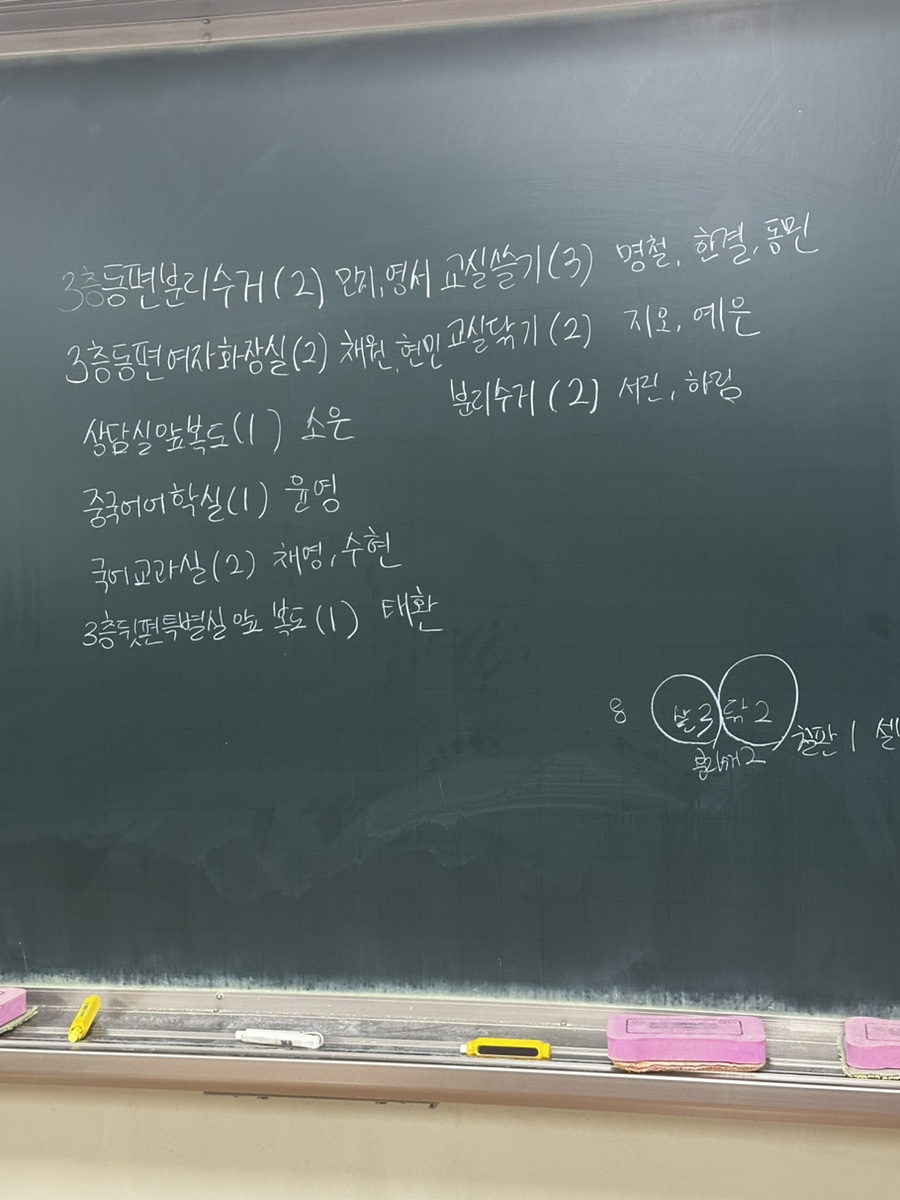 3층동편분리수거(2) 민지,영서 교실쓸기(3) 명철, 한결, 동민
3층동편여자화장실(2) 채원,현민 교실닦기(2) 지오, 예은
분리수거(2) 서린, 하림
상담실앞복도(1) 소은
중국어어학실(1) 윤영
국어교과실(2) 채영,수현
3층뒷편특별실앞 복도(1) 태환
8 쓸3 닦2
2 칠판1